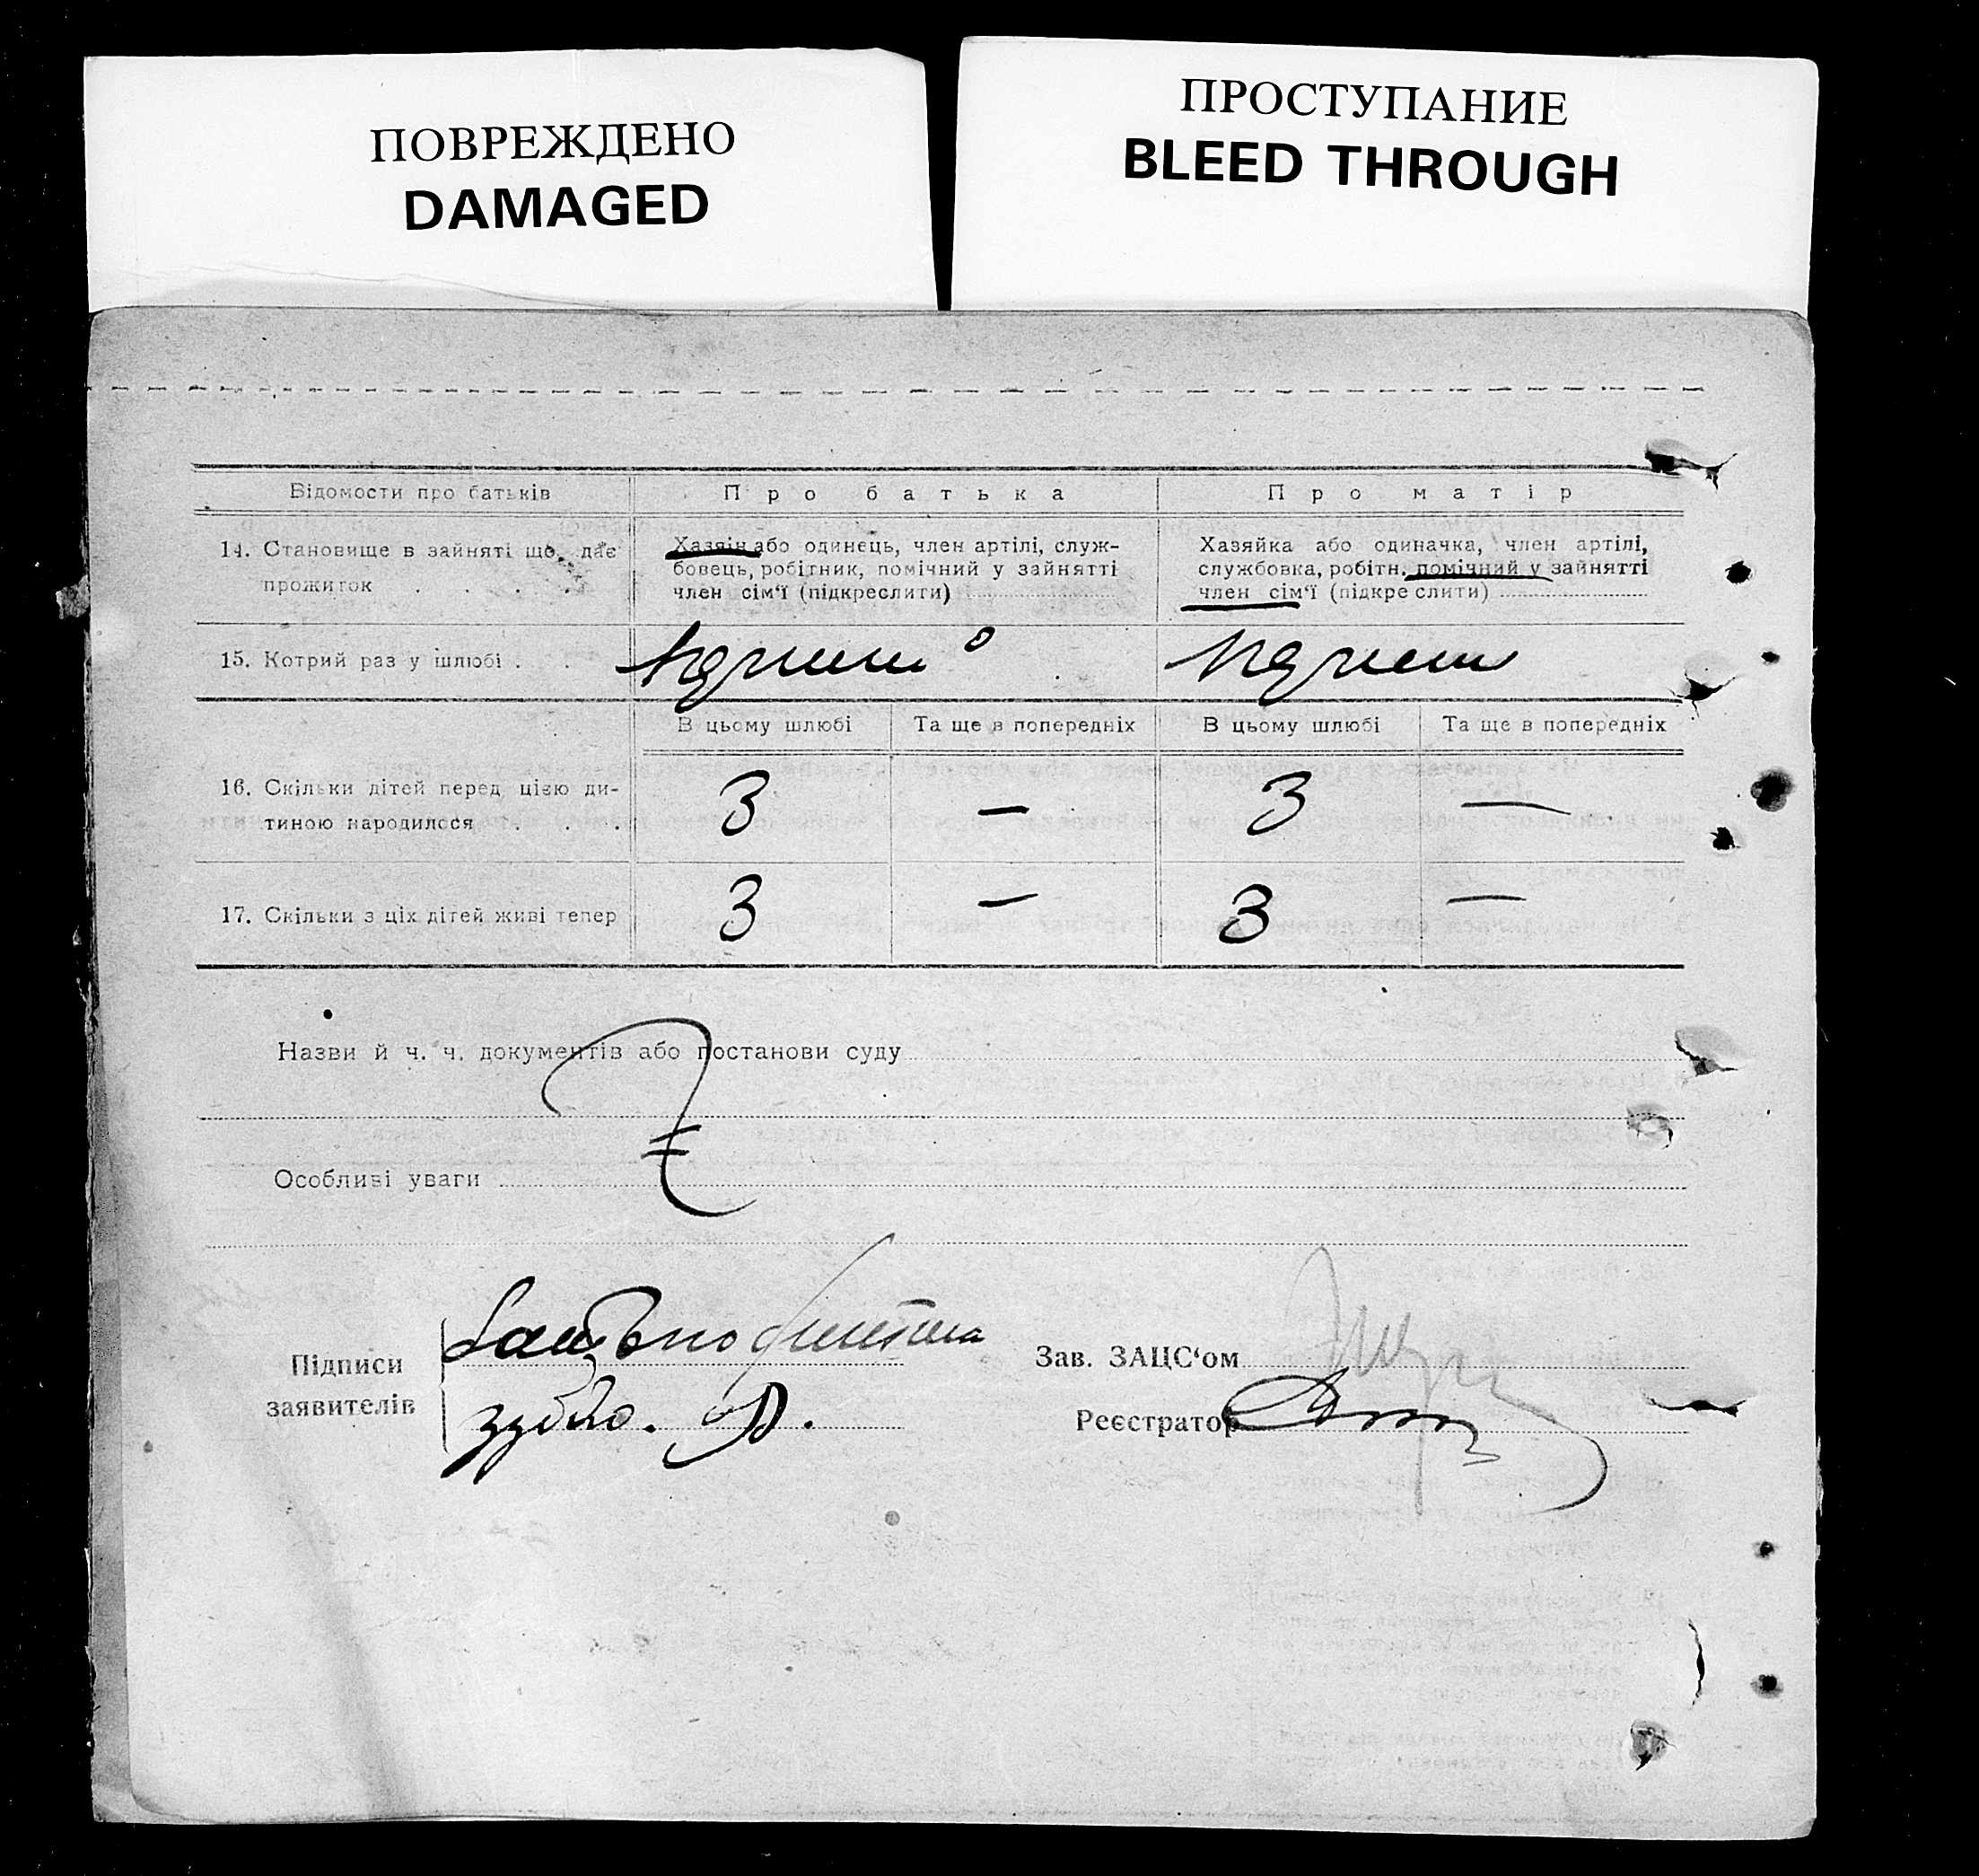 ПОВРЕЖДЕНО
DAMAGED
ПРОСТУПАНИЕ
BLEED THROUGH
Відомости про батьків
Про батька
Про матір
14. Становище в зайняті що дає
прожиток . . . .
Хазяін або одинець, член артілі, служ-
бовець, робітник, помічний у зайнятті
член сім‘ї (підкреслити)
Хазяйка або одиначка, член артілі,
службовка, робітн. помічний у зайнятті
член сім‘ї (підкреслити)
15. Котрий раз у шлюбі . .
В цьому шлюбі
Та ще в попередніх
В цьому шлюбі
Та ще в попередніх
16. Скільки дітей перед цією ди-
тиною народилося . . .
3
—
3
—
17. Скільки з ціх дітей живі тепер
3
—
3
—
Назви й ч. ч. документів або постанови суду
Особливі уваги
Підписи
заявителів
Зав. ЗАЦС‘ом
Реєстратор